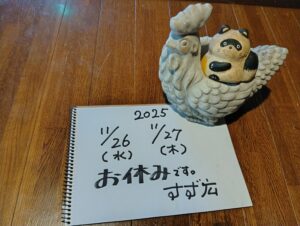 2025
11/26 11/27
(水) (木)
お休みです。
すず広